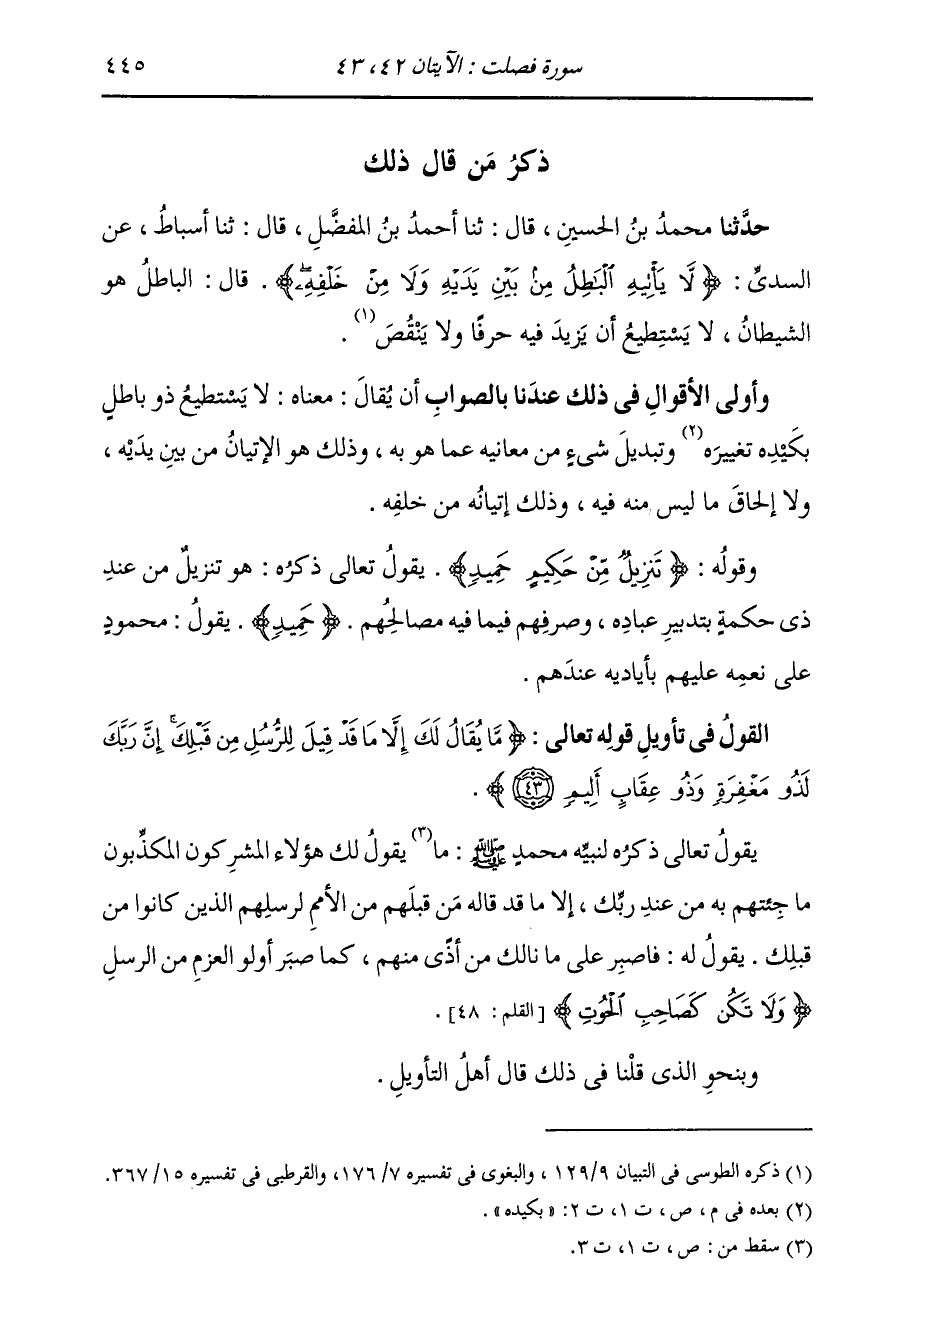 سورة فصلت : الآيتان ٤٢ ، ٤٣ ٤٤٥
ذكرُ مَن قال ذلك
حدَّثنا محمدُ بنُ الحسينِ ، قال : ثنا أحمدُ بنُ المفضَّلِ ، قال : ثنا أسباطُ ، عن
السدىِّ : ﴿ لَّا يَأْنِيهِ ٱلْبَٰطِلُ مِنۢ بَيْنِ يَدَيْهِ وَلَا مِنْ خَلْفِهِۦ ﴾ . قال : الباطلُ هو
الشيطانُ ، لا يَسْتِطيعُ أن يَزيدَ فيه حرفًا ولا يَنْقُصَ (١) .
وأولى الأقوالِ فى ذلك عندَنا بالصوابِ أن يُقالَ : معناه : لا يَسْتطيعُ ذو باطلٍ
بكَيْدِه تغييرَه (٢) وتبديلَ شىءٍ من معانيه عما هو به ، وذلك هو الإتيانُ من بينِ يدَيْه ،
ولا إلحاقَ ما ليس منه فيه ، وذلك إتيانُه من خلفِه .
وقولُه : ﴿ تَنزِيلٌ مِّنْ حَكِيمٍ حَمِيدٍ ﴾ . يقولُ تعالى ذكرُه : هو تنزيلٌ من عندِ
ذى حكمةٍ بتدبيرِ عبادِه ، وصرفِهم فيما فيه مصالحُهم . ﴿ حَمِيدٍ ﴾ . يقولُ : محمودٍ
على نعمِه عليهم بأياديه عندَهم .
القولُ فى تأويلِ قولِه تعالى : ﴿ مَّا يُقَالُ لَكَ إِلَّا مَا قَدْ قِيلَ لِلرُّسُلِ مِن قَبْلِكَ ۚ إِنَّ رَبَّكَ
لَذُو مَغْفِرَةٍ وَذُو عِقَابٍ أَلِيمٍ ٤٣ ﴾ .
يقولُ تعالى ذكرُه لنبيِّه محمدٍ ﷺ : ما (٣) يقولُ لك هؤلاء المشركون المكذِّبون
ما جِئتهم به من عندِ ربِّك ، إلا ما قد قاله مَن قبلَهم من الأممِ لرسلِهم الذين كانوا من
قبلِك . يقولُ له : فاصبِر على ما نالك من أذًى منهم ، كما صبَر أولو العزمِ من الرسلِ
﴿ وَلَا تَكُن كَصَاحِبِ ٱلْحُوتِ ﴾ [القلم : ٤٨] .
وبنحوِ الذى قلْنا فى ذلك قال أهلُ التأويلِ .
(١) ذكره الطوسى فى التبيان ١٢٩/٩ ، والبغوى فى تفسيره ٧/ ١٧٦ ، والقرطبى فى تفسيره ١٥/ ٣٦٧ .
(٢) بعده فى م ، ص ، ت ١ ، ت ٢ : « بكيده » .
(٣) سقط من : ص ، ت ١ ، ت ٣ .